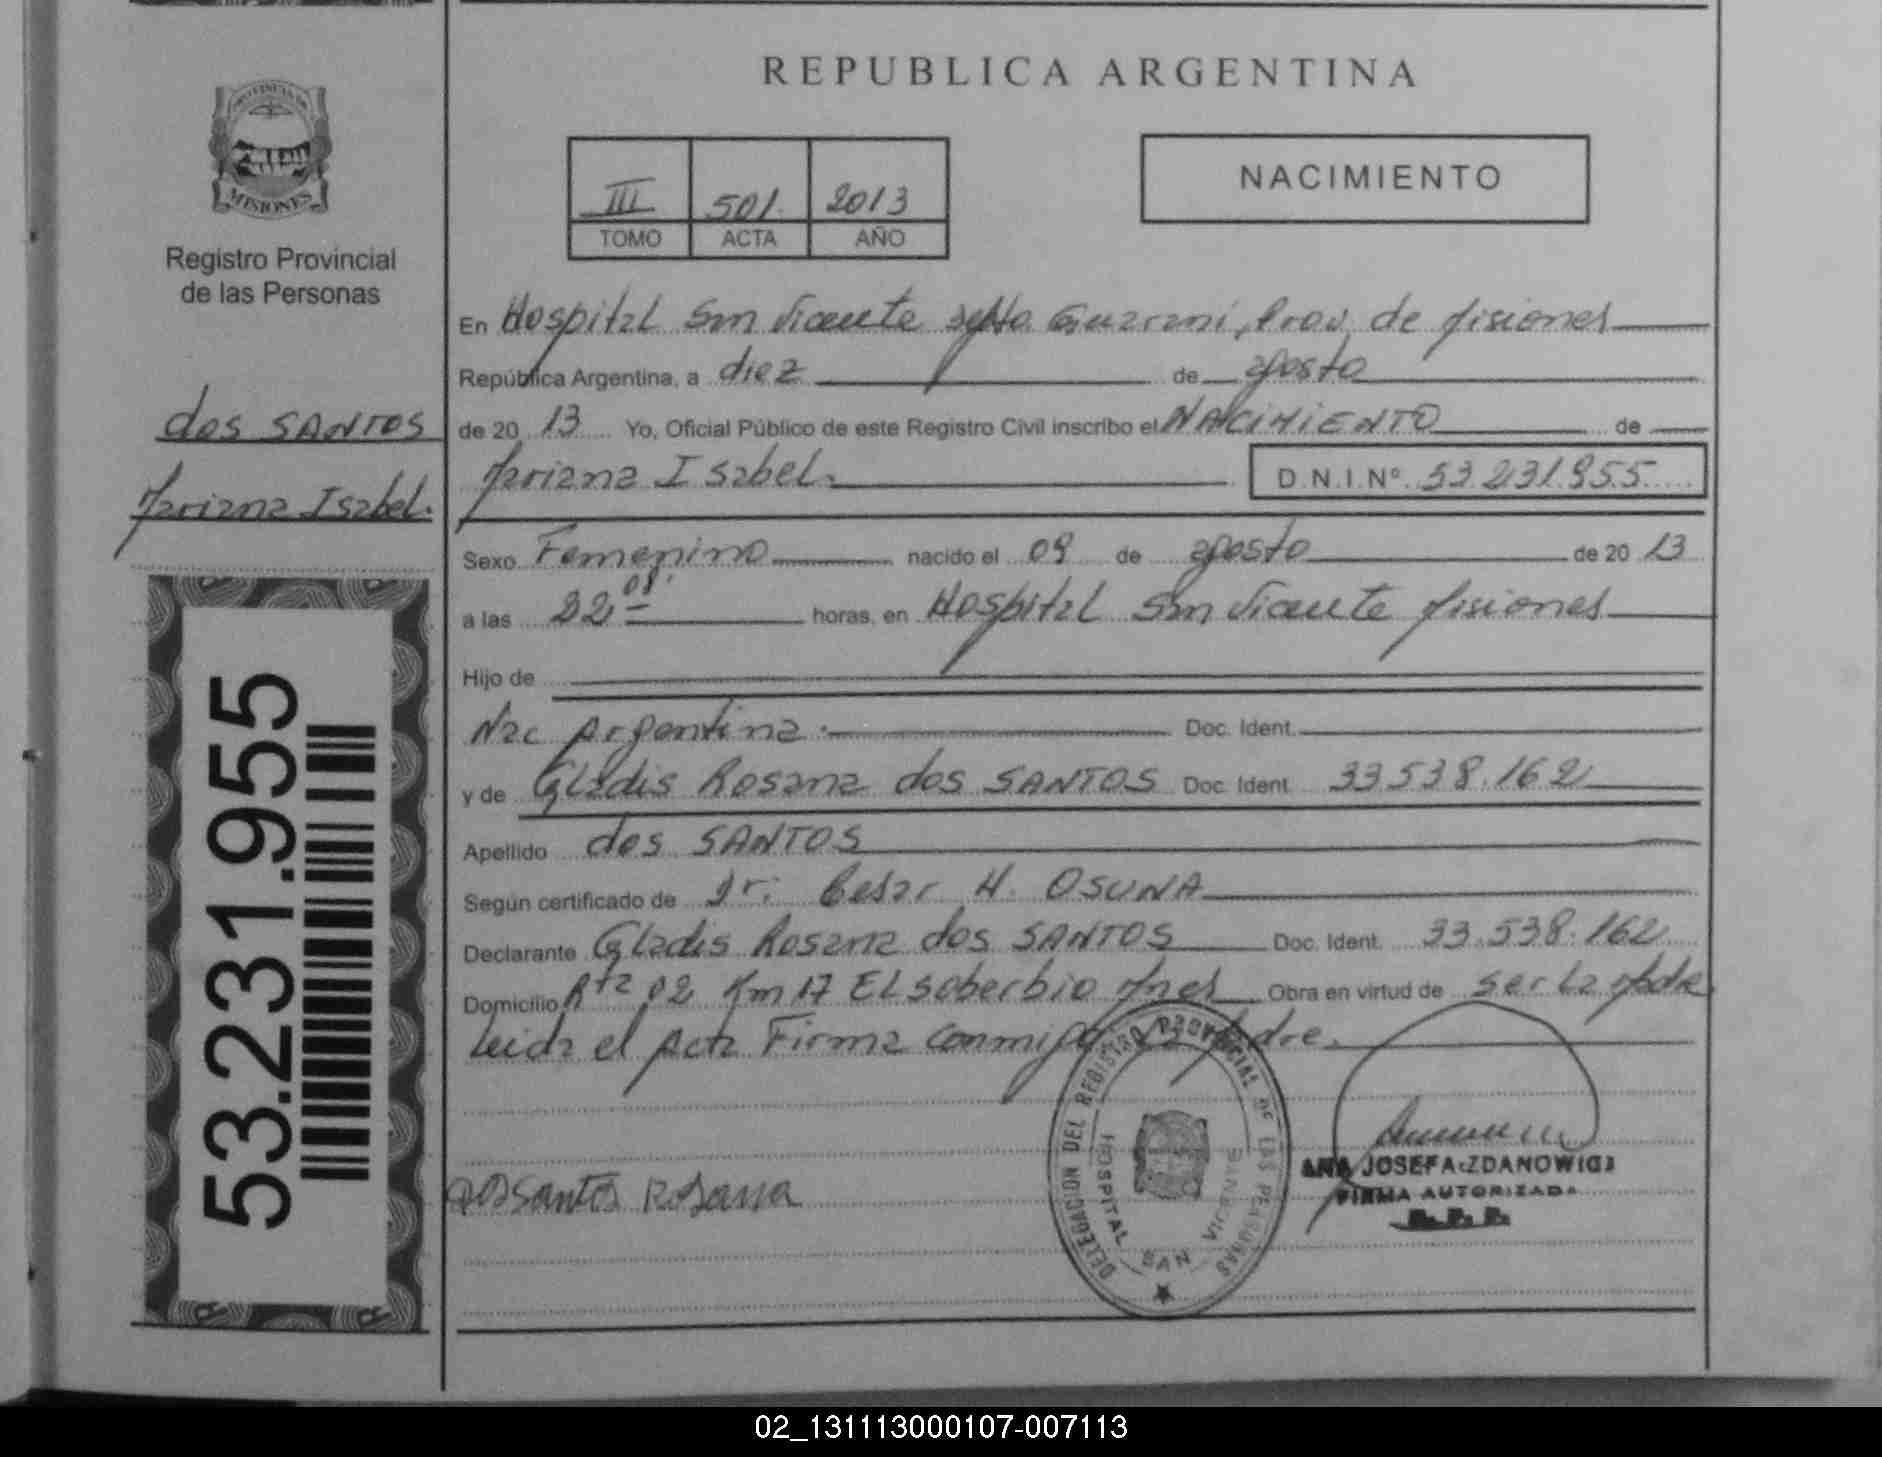 REPUBLICA ARGENTINA
PROVINCIA DE
MISIONES
Registro Provincial
de las Personas
dos SANTOS
Mariana Isabel.
53.231.955
III 501 2013
TOMO ACTA AÑO
NACIMIENTO
En Hospital San Vicente Depto Guarani, Prov. de Misiones
República Argentina, a diez de agosto
de 20 13 Yo, Oficial Público de este Registro Civil inscribo el NACIMIENTO de
Mariana Isabel. D.N.I.Nº 53.231.955
Sexo Femenino nacido el 09 de agosto de 20 13
a las 22 08' horas, en Hospital San Vicente Misiones
Hijo de
Nac Argentina. Doc. Ident.
y de Gladis Rosana dos SANTOS Doc. Ident. 33538.162
Apellido dos SANTOS
Según certificado de Dr. Cesar H. OSUNA
Declarante Gladis Rosana dos SANTOS Doc. Ident. 33.538.162
Domicilio Rta 02 Km 17 El soberbio Mnes Obra en virtud de ser la Madre
Leida el Acta Firma conmigo la Madre.
DELEGACION DEL REGISTRO PROVINCIAL DE LAS PERSONAS
HOSPITAL SAN VICENTE
Dos Santos Rosana
ANA JOSEFA ZDANOWICZ
FIRMA AUTORIZADA
R. P. P.
02_131113000107-007113